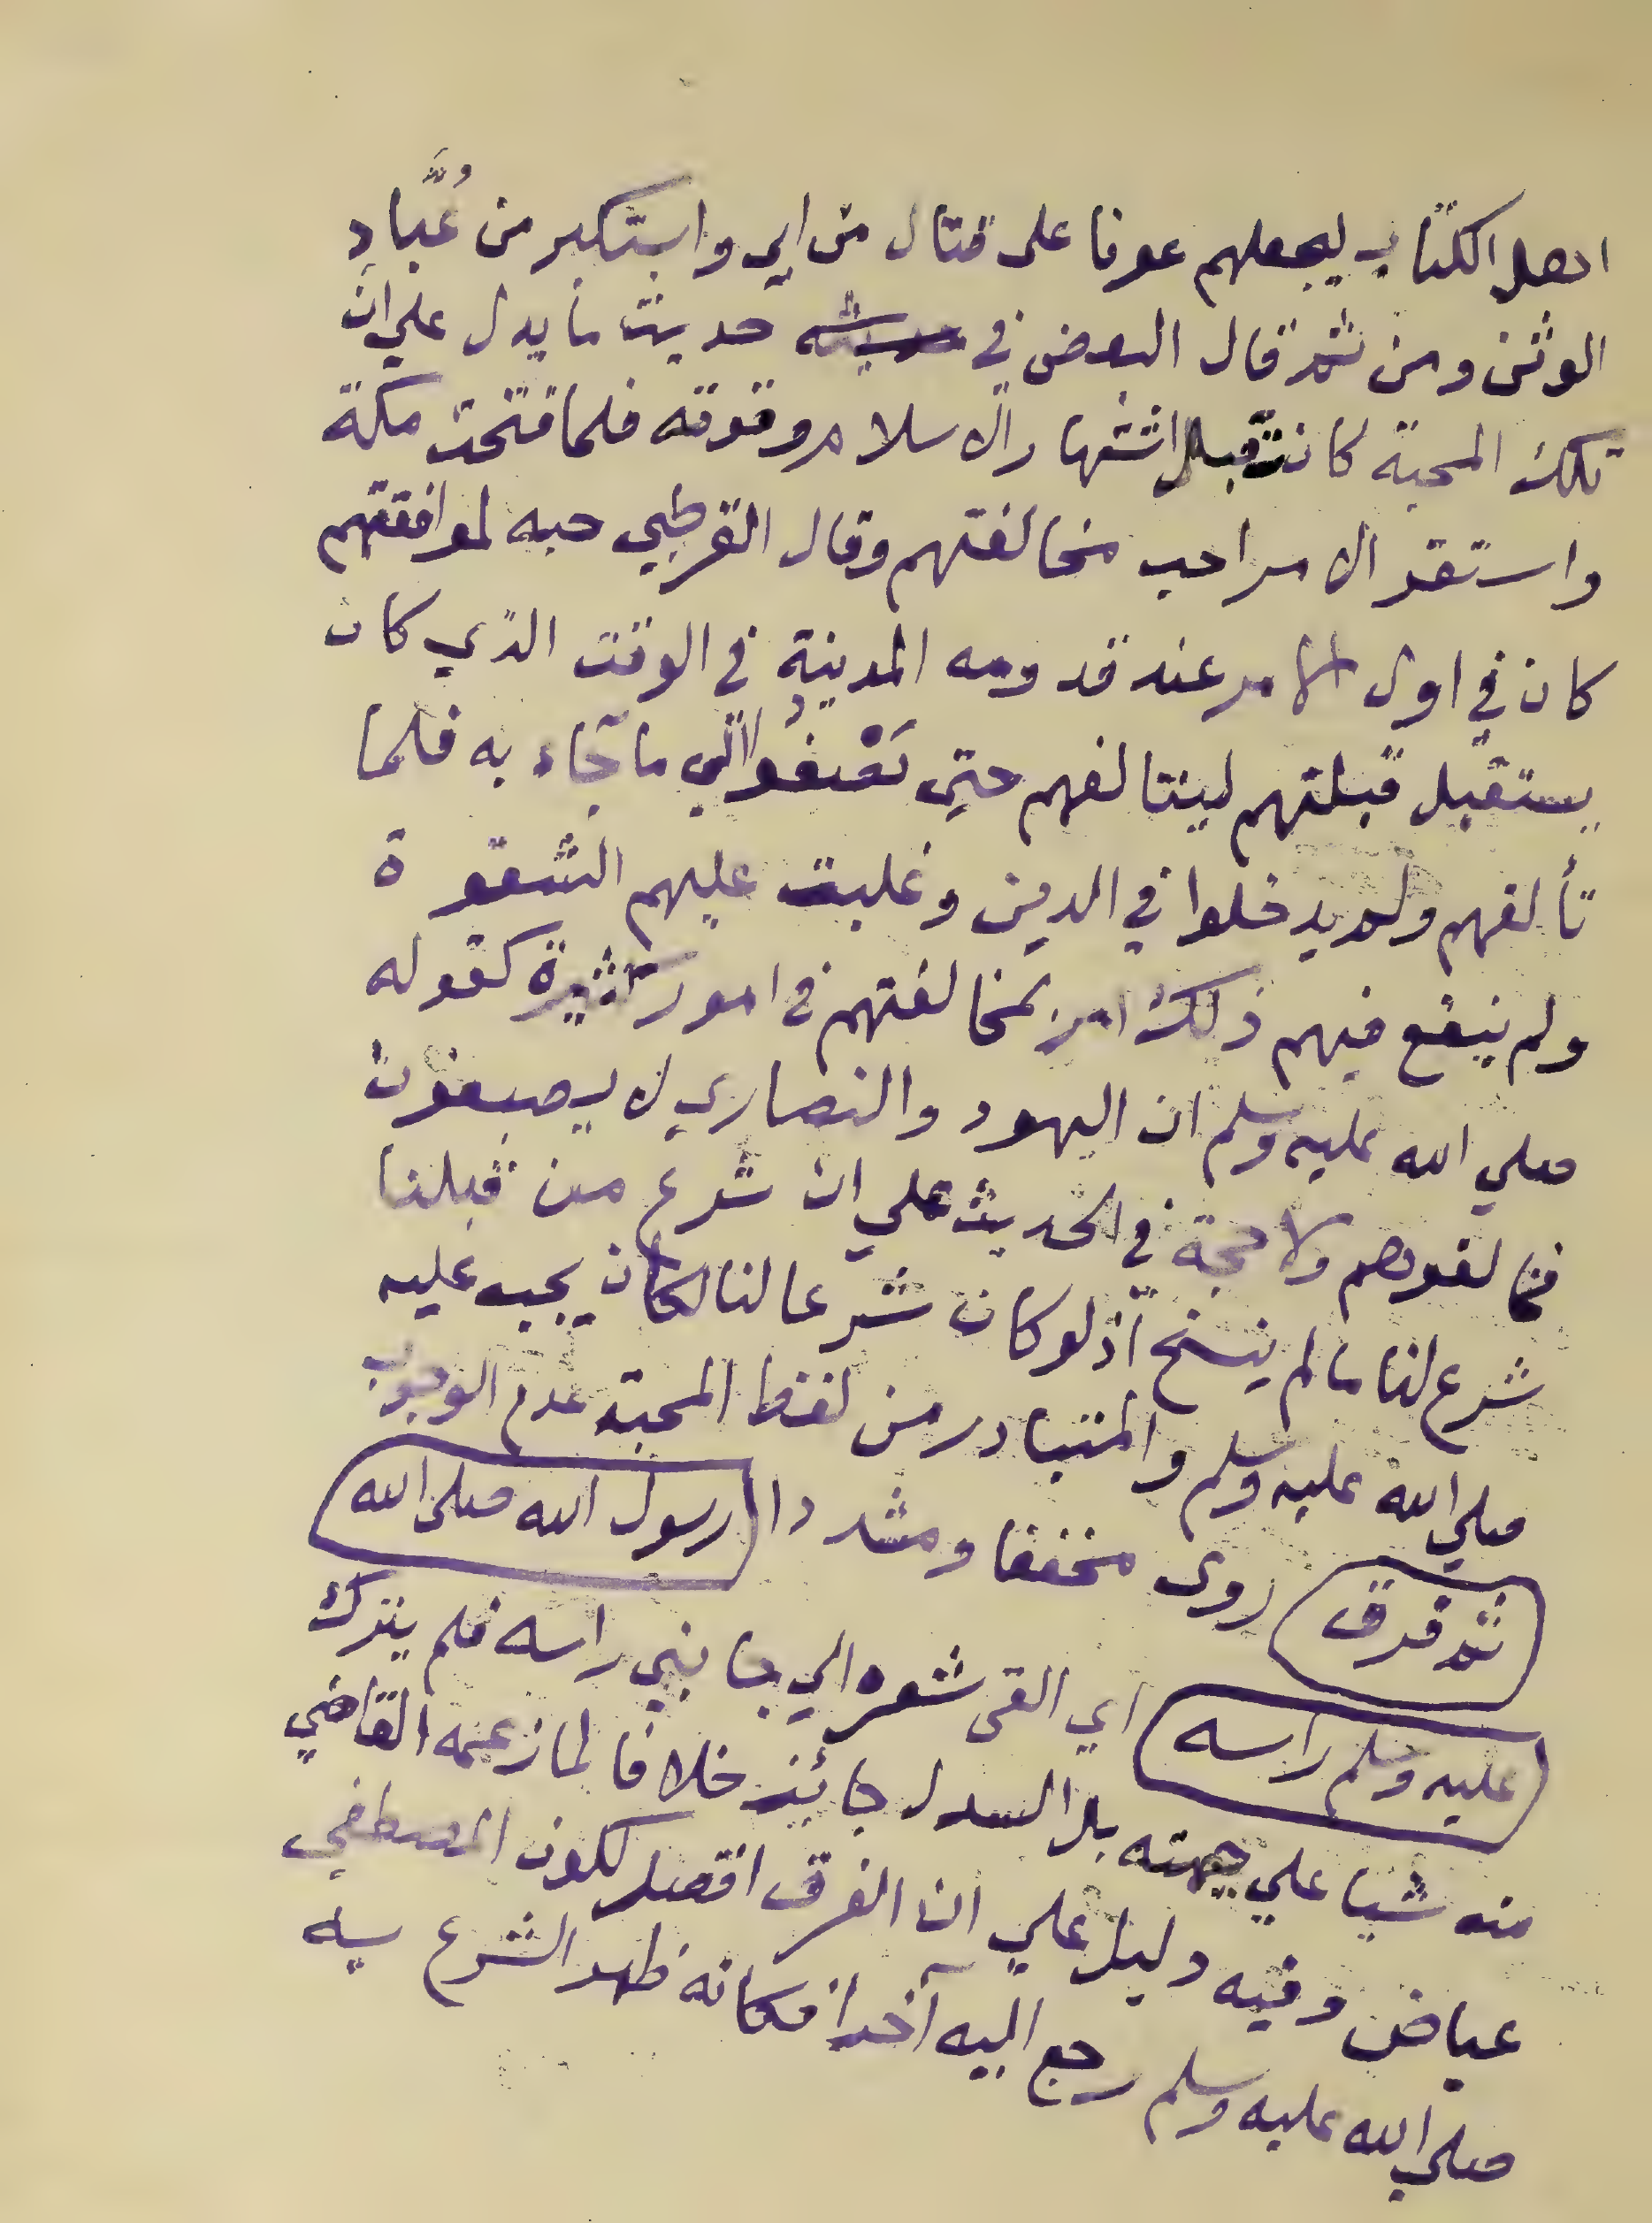 اهل الكتاب ليجعلهم عونا على قتال من ابي واستكبر من عُبَّادِ
الوثن ومن ثم قال البعض في حديث ما يدل علي ان
تلك المحبة كانت قبل اشتهار الاسلام وقوته فلما فتحت مكة
واستقر الامر احب مخالفتهم وقال القرطبي حبه لموافقتهم
كان في اول الامر عند قدومه المدينة في الوقت الذي كان
يستقبل قبلتهم ليتالفهم حتي الي ما جاء به فلما
تألفهم ولم يدخلوا في الدين وغلبت عليهم الشقوة
ولم ينفع فيهم ذلك امر بمخالفتهم في امور كثيرة كقوله
صلي الله عليه وسلم ان اليهود والنصاري لا يصبغون
فخالفوهم ولا حجة في الحديث علي ان شرع من قبلنا
شرع لنا ما لم ينسخ اذ لو كان شرعا لنا لكان يجب عليه
صلي الله عليه وسلم والمتبادر من لفظ المحبة عدم الوجوب
ثم فرق روى مخففا ومشددا رسول الله صلى الله
عليه وسلم راسه اي القى شعره الي جانبي راسه فلم يترك
منه شيا علي جبهته بل السدل جائز خلافا لما زعمه القاضي
عياض وفيه دليل علي ان الفرق افضل لكون المصطفي
صلي الله عليه وسلم رجع اليه آخرا فكانه ظهر الشرع به